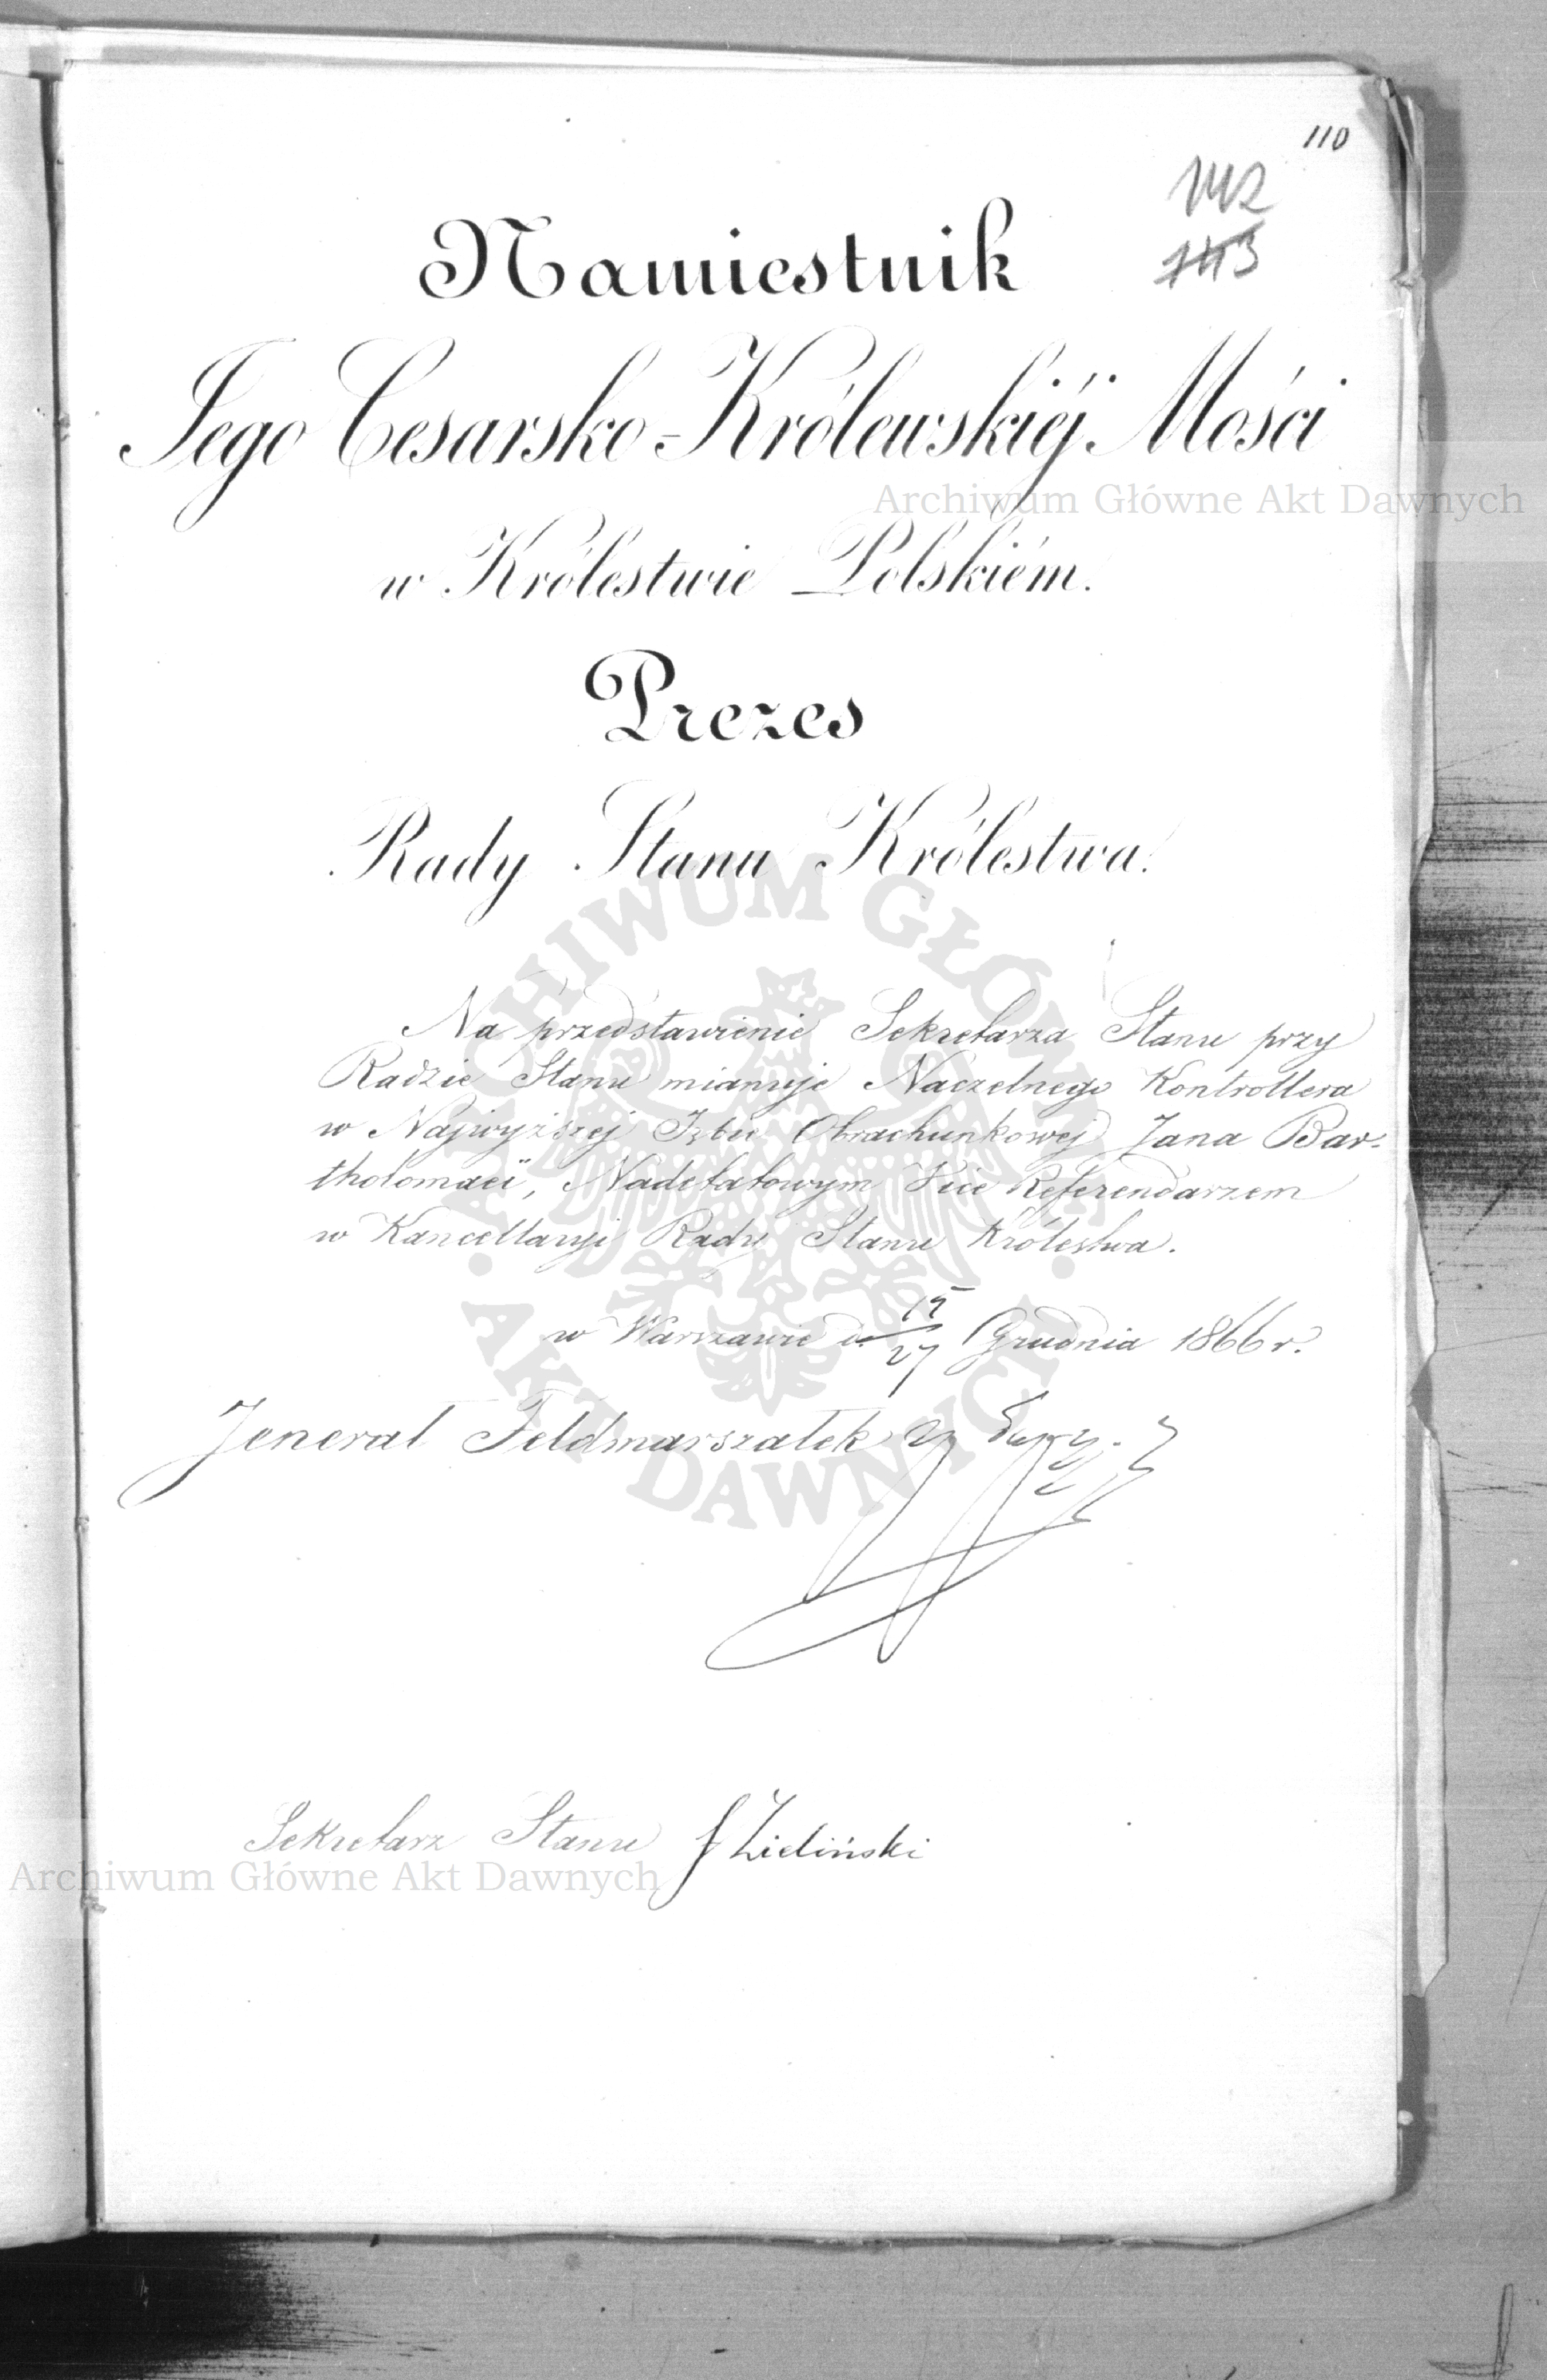 110
142
143
Namiestnik
Jego Cesarsko-Królewskiéj Mości
Archiwum Główne Akt Dawnych
w Królestwie Polskiém.
Prezes
Rady Stanu Królestwa.
ARCHIWUM GŁÓWNE
Na przedstawienie Sekretarza Stanu przy
Radzie Stanu mianuje Naczelnego Kontrollera
w Najwyższej Izbie Obrachunkowej Jana Bar-
tholomaei, Nadetatowym Vice Referendarzem
w Kancellaryi Rady Stanu Królestwa.
w Warszawie d. 15/27 Grudnia 1866 r.
Jenerał Feldmarszałek
AKT DAWNYCH
Sekretarz Stanu J Zieliński
Archiwum Główne Akt Dawnych